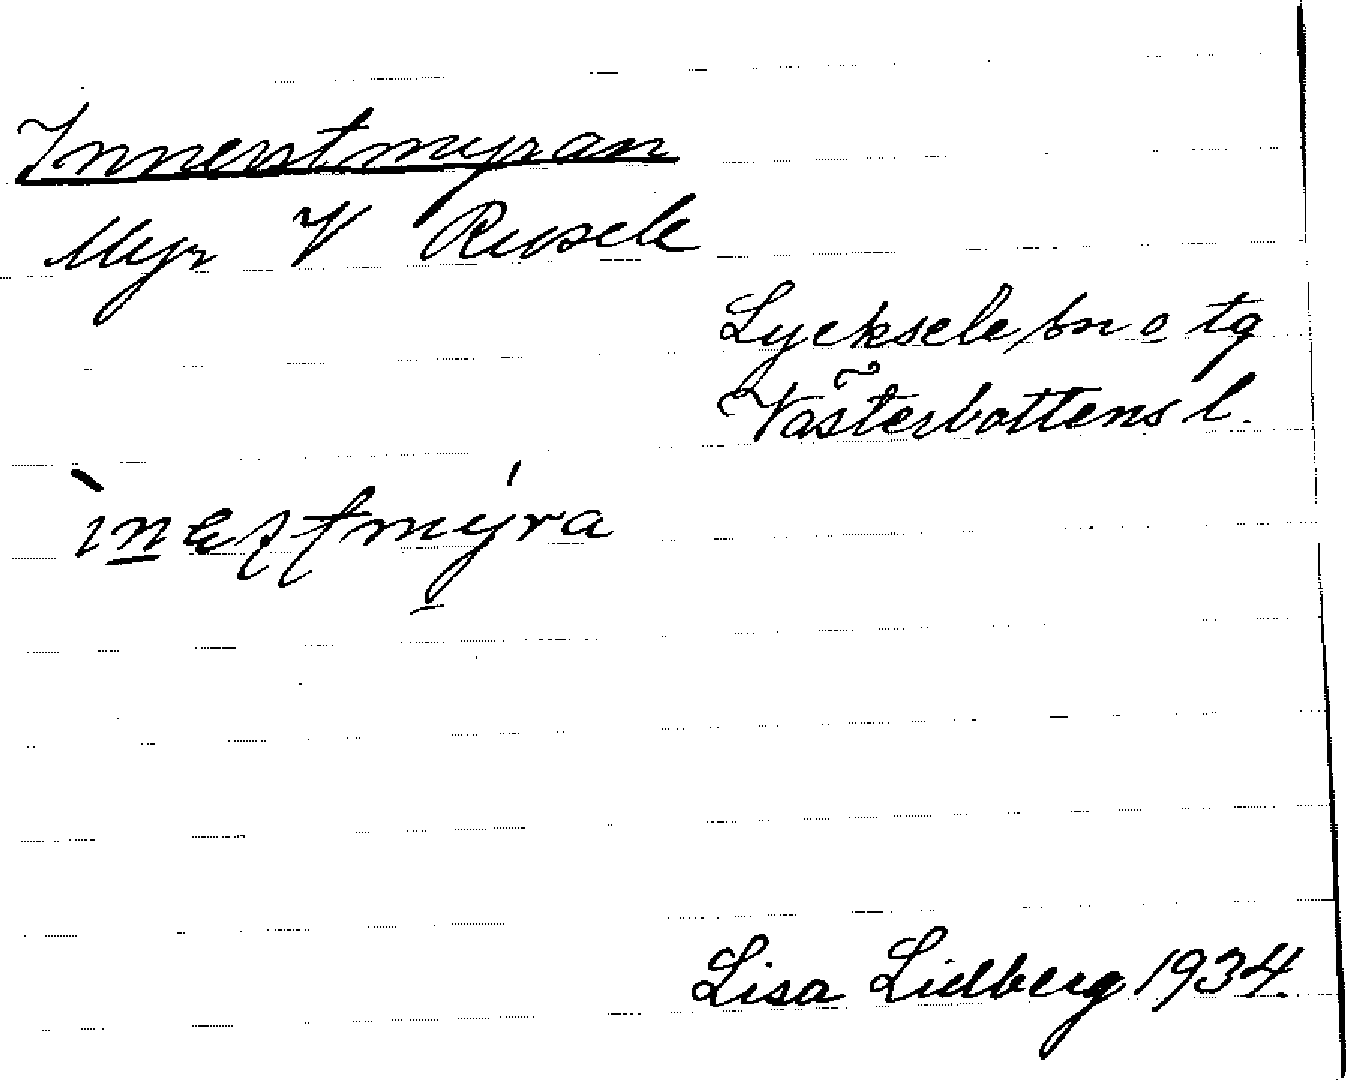 Innerstmyran
Myr V Rusele
Lycksele sn o tg
Västerbottens l.
Lisa Lidberg 1934.